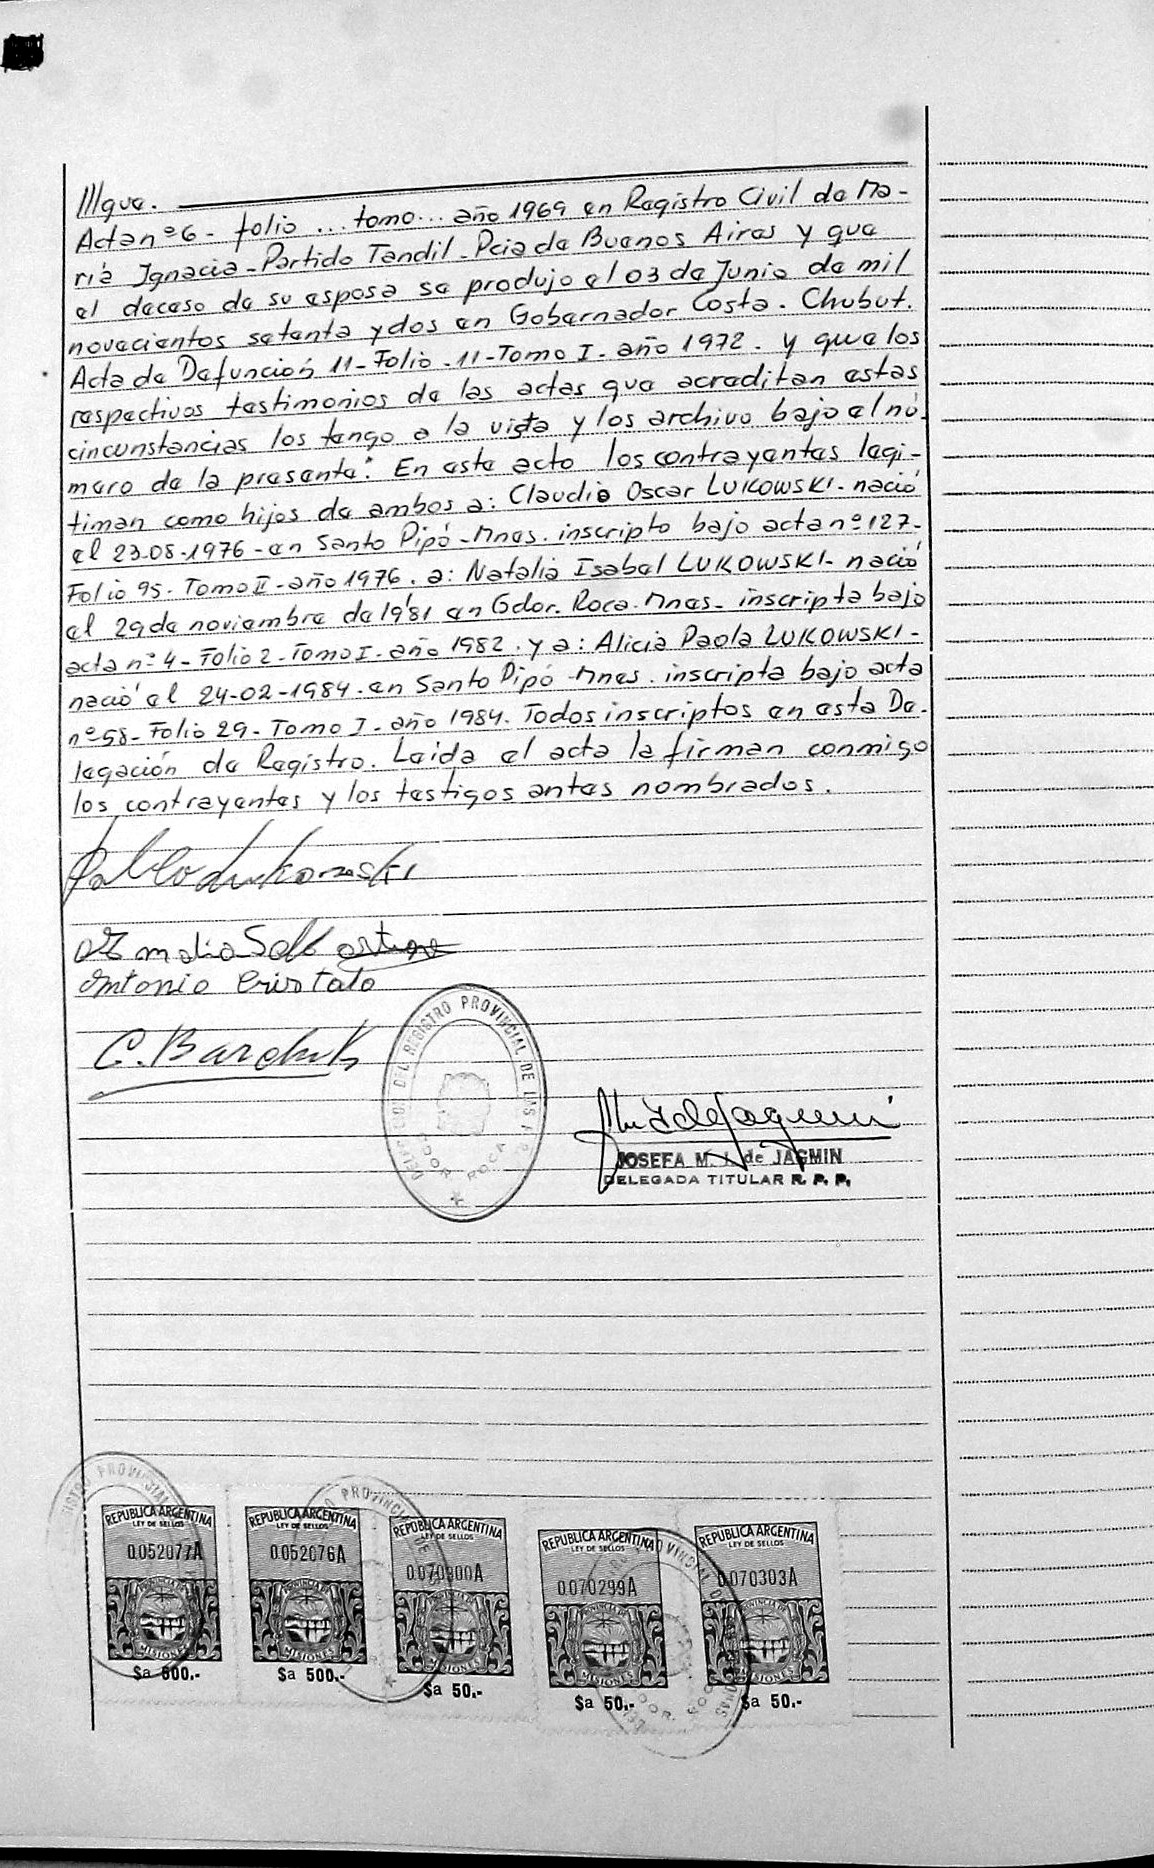 Acta nº 6 - folio ... tomo ... año 1969 en Registro Civil de Ma-
ría Ignacia - Partido Tandil - Pcia de Buenos Aires y que
el deceso de su esposa se produjo el 03 de Junio de mil
novecientos setenta y dos en Gobernador Costa - Chubut.
Acta de Defunción 11 - Folio - 11 - Tomo I - año 1972 - y que los
respectivos testimonios de las actas que acreditan estas
circunstancias los tengo a la vista y los archivo bajo el nú-
mero de la presente". En este acto los contrayentes legi-
timan como hijos de ambos a: Claudio Oscar LUKOWSKI - nació
el 23-08-1976 - en Santo Pipó - Mnes. inscripto bajo acta nº 127-
Folio 95 - Tomo II - año 1976. a: Natalia Isabel LUKOWSKI - nació
el 29 de noviembre de 1981 en Gdor. Roca - Mnes - inscripta bajo
acta nº 4 - Folio 2 - Tomo I - año 1982 - y a: Alicia Paola LUKOWSKI -
nació el 24-02-1984 - en Santo Pipó - Mnes. inscripta bajo acta
nº 58 - Folio 29 - Tomo I - año 1984. Todos inscriptos en esta De-
legación de Registro. Leída el acta la firman conmigo
los contrayentes y los testigos antes nombrados.
Pablo Lukowski
Antonio Cristato
C. Barchuk
DEL REGISTRO PROVINCIAL DE LAS
GDOR. ROCA
JOSEFA M. I. de JAGMIN
DELEGADA TITULAR R. P. P.
REPUBLICA ARGENTINA REPUBLICA ARGENTINA REPUBLICA ARGENTINA REPUBLICA ARGENTINA REPUBLICA ARGENTINA
LEY DE SELLOS LEY DE SELLOS LEY DE SELLOS LEY DE SELLOS LEY DE SELLOS
0.052077A 0.052076A 0.070300A 0.070299A 0.070303A
PROVINCIA DE PROVINCIA DE PROVINCIA DE PROVINCIA DE PROVINCIA DE
MISIONES MISIONES MISIONES MISIONES MISIONES
$a 500.- $a 500.- $a 50.- $a 50.- $a 50.-